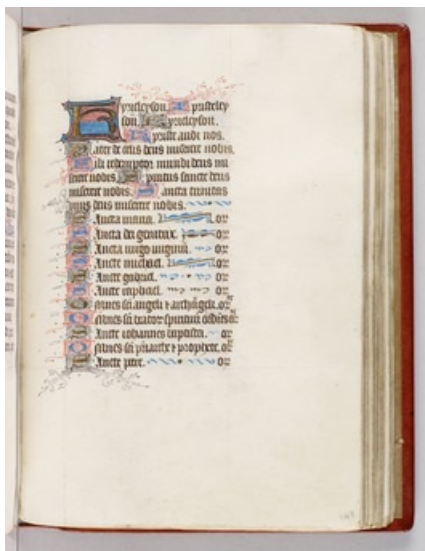 Kyrieleyson. Xpristeley
son. Kyrieleyson.
Xpriste audi nos.
Pater de celis deus miserere nobis.
Fili redemptor mundi deus mi
serere nobis. Spiritus sancte deus
miserere nobis. Sancta trinitas
unus deus miserere nobis.
Sancta maria. or
Sancta dei genitrix. or
Sancta virgo virginum. or
Sancte michael. or
Sancte gabriel. or
Sancte raphael. or
Omnes sci angeli & archangeli. or
Omnes sci beator spirituu ordines or
Sancte iohannes baptista. or
Omnes sci priarche & prophete. or
Sancte petre. or